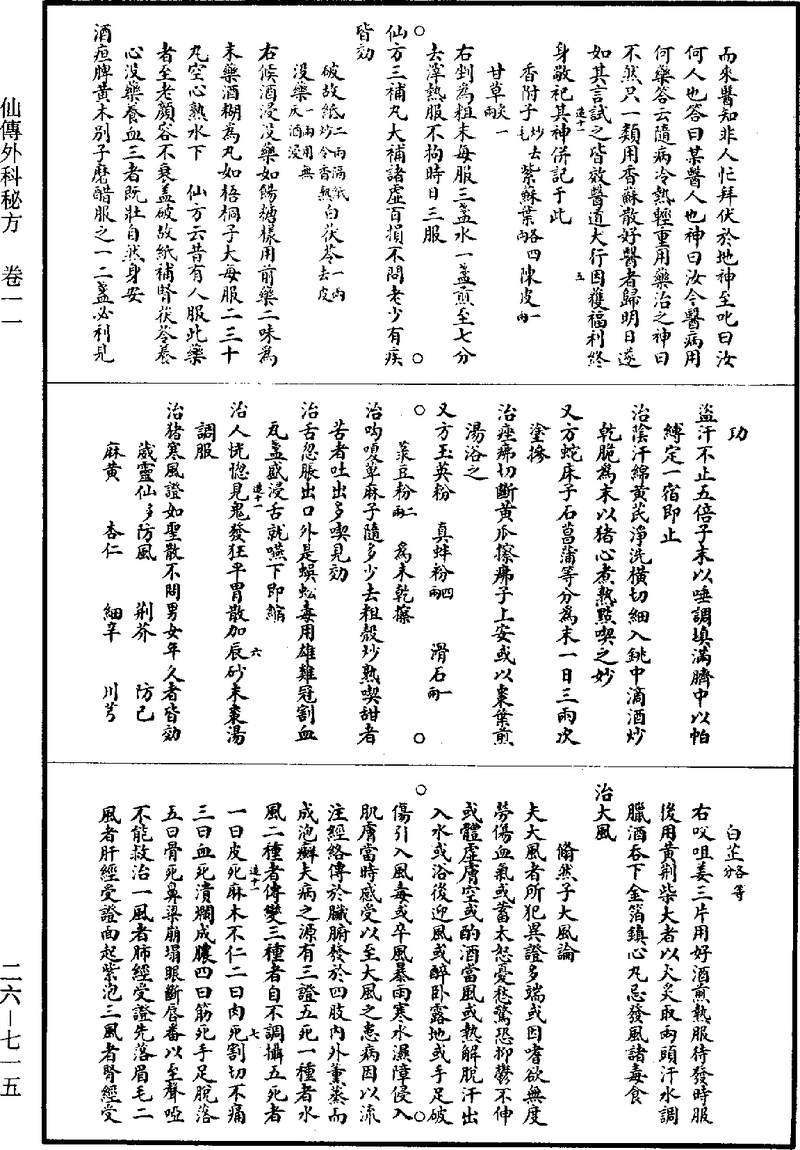 仙傳外科秘方 卷一一
二六—七一五
而來醫知非人忙拜伏於地神至叱曰汝
何人也答曰某醫人也神曰汝今醫病用
何藥答云隨病冷熱輕重用藥治之神曰
不然只一類用香蘇散好醫者歸明日遂
如其言試之皆效醫道大行因獲福利終
身敬祀其神併記于此
香附子炒去毛 紫蘇葉各四兩 陳皮一兩
甘草炙一兩
右剉為粗末每服三盞水一盞煎至七分
去滓熱服不拘時日三服
仙方三補丸大補諸虛百損不問老少有疾
皆効
破故紙二兩隔紙炒令香熟 白茯苓一兩去皮
沒藥一兩用無灰酒浸
右候酒浸沒藥如餳糖樣用前藥二味為
末藥酒糊為丸如梧桐子大每服二三十
丸空心熟水下 仙方云昔有人服此藥
者至老顏容不衰盖破故紙補腎茯苓養
心沒藥養血三者既壯自然身安
酒疸脾黃木別子磨醋服之一二盞必利見
功
盜汗不止五倍子末以唾調填滿臍中以帕
縛定一宿即止
治陰汗綿黃芪淨洗橫切細入銚中滴酒炒
乾脆為末以猪心煮熟㸃喫之妙
又方蛇床子石菖蒲等分為末一日三兩次
塗摻
治痤疿切斷黃瓜擦疿子上安或以棗葉煎
湯浴之
又方玉英粉 真蚌粉四兩 滑石一兩
菉豆粉二兩 為末乾藥
治呴嗄萆麻子隨多少去粗殼炒熟喫甜者
苦者吐出多喫見効
治舌忽脹出口外是蜈蚣毒用雄雞冠割血
瓦盞盛浸舌就嚥下即縮
治人恍惚見鬼發狂平胃散加辰砂末棗湯
調服
治猪寒風證如聖散不問男女年久者皆効
葳靈仙多 防風 荊芥 防己
麻黃 杏仁 細辛 川芎
白芷各等分
右㕮咀姜三片用好酒煎熱服待發時服
後用黃荊柴大者以火炙取兩頭汗水調
臘酒吞下金箔鎮心丸忌發風諸毒食
治大風
翛然子大風論
夫大風者所犯異證多端或因嗜欲無度
勞傷血氣或蓄太怒憂愁驚恐抑鬱不伸
或體虛膚空或酌酒當風或熱解脫汗出
入水或浴後迎風或醉卧露地或手足破
傷引入風毒或卒風暴雨寒水濕障侵入
肌膚當時感受以至大風之患病因以流
注經絡傳於臟腑發於四肢內外薰蒸而
成泡癬夫病之源有三證五死一種者水
風二種者傳變三種者自不調攝五死者
一曰皮死麻木不仁二曰肉死割切不痛
三曰血死潰爛成膿四曰筋死手足脫落
五曰骨死鼻梁崩塌眼斷唇番以至聲啞
不能救治一風者肺經受證先落眉毛二
風者肝經受證面起紫泡三風者腎經受